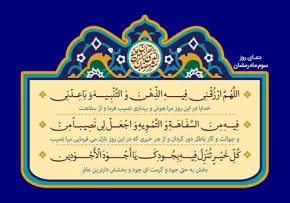 دعای روز
سوم ماه رمضان
اللَّهُمَّ ارْزُقْنِي فِيهِ الذِّهْنَ وَ التَّنْبِيهَ وَ بَاعِدْنِي
خدایا در این روز مرا هوش و بیداری نصیب فرما و از سفاهت
فِيهِ مِنَ السَّفَاهَةِ وَ التَّمْوِيهِ وَ اجْعَلْ لِي نَصِيباً مِنْ
و جهالت و کار باطل دور گردان و از هر خیری که در این روز نازل می فرمایی مرا نصیب
كُلِّ خَيْرٍ تُنْزِلُ فِيهِ بِجُودِكَ يَا أَجْوَدَ الْأَجْوَدِينَ
بخش به حق جود و کرمت ای جود و بخشش دارترین عالم